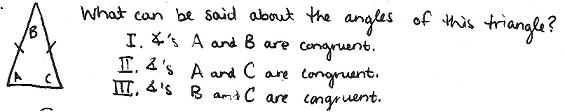 What can be said about the angles of this triangle?
B
I. ∡'s A and B are congruent.
II. ∡'s A and C are congruent.
A C
III. ∡'s B and C are congruent.